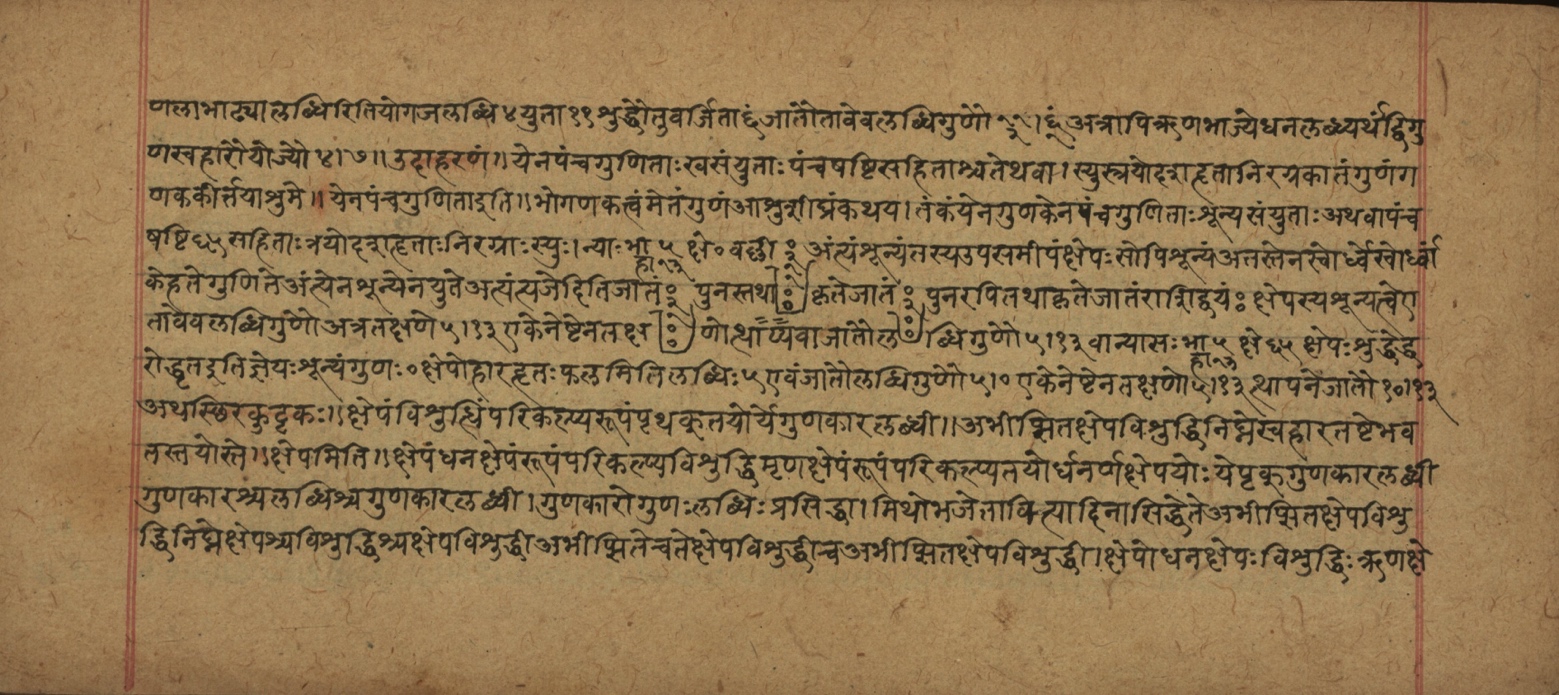 णलाभाढ्यालब्धिरितियोगजलब्धि ४ युता ११ शुद्धौतुवर्जिता अत्रापिऋणभाज्येधनलब्ध्यर्थंद्विगु
णस्वहारौयोज्यौ ४।७॥ उदाहरणं॥ येनपंचगुणिताःखसंयुताःपंचषष्टिसहिताश्चतेथवा। स्युस्त्रयोदशहृतानिरग्रकातंगुणंग
णककीर्त्तयाशुमे॥ येनपंचगुणिताइति॥ भोगणकत्वंमेतंगुणंआशुशीघ्रंकथय। तंकंयेनगुणकेनपंचगुणिताःशून्यसंयुताःअथवापंच
षष्टि ६५ सहिताःत्रयोदशहृताःनिरग्राःस्युः। न्याः भा ५ हा १३ क्षे ० वल्ली अंत्यंशून्यंतस्यउपसमीपंक्षेपःसोपिशून्यंअतस्तेनस्वोर्ध्वेस्वोर्ध्वां
केहतेगुणितेअंत्येनशून्येनयुतेअत्यंत्यजेदितिजातं पुनस्तथा कृतेजातं पुनरपितथाकृतेजातंराशिद्वयं क्षेपस्यशून्यत्वेए
तावेवलब्धिगुणौअत्रतक्षणे ५।१३ एकेनेष्टेनतक्ष णोत्थाप्यैवाजातौल ब्धिगुणौ ५।१३ वान्यासः भा ५ हा १३ क्षे ६५ क्षेपःशुद्धेद्ध
रोद्धृतइतिज्ञेयःशून्यंगुणः ० क्षेपोहारहृतःफलमितिलब्धिः ५ एवंजातौलब्धिगुणौ ५।० एकेनेष्टेनतक्षणौ ५।१३ त्थापनेजातौ १०।१३
अथस्छिरकुट्टकः॥ क्षेपंविशुत्धिंपरिकल्प्यरूपंपृथक्तयोर्येगुणकारलब्धी॥ अभीप्सितक्षेपविशुद्धिनिघ्नेस्वहारतष्टेभव
तस्तयोस्ते॥ क्षेपमिति॥ क्षेपंधनक्षेपंरूपंपरिकल्प्यविशुद्धिमृणक्षेपंरूपंपरिकल्प्यतयोर्धनर्णक्षेपयोःयेपृक्गुणकारलब्धी
गुणकारश्चलब्धिश्चगुणकारलब्धी। गुणकारोगुणःलब्धिःप्रसिद्धा। मिथोभजेत्तावित्यादिनासिद्धेतेअभीप्सितक्षेपविशु
द्धिनिघ्नेक्षेपश्चविशुद्धिश्चक्षेपविशुद्धीअभीप्सितेचतेक्षेपविशुद्धीचअभीप्सितक्षेपविशुद्धी। क्षेपोधनक्षेपःविशुद्धिःऋणक्षे